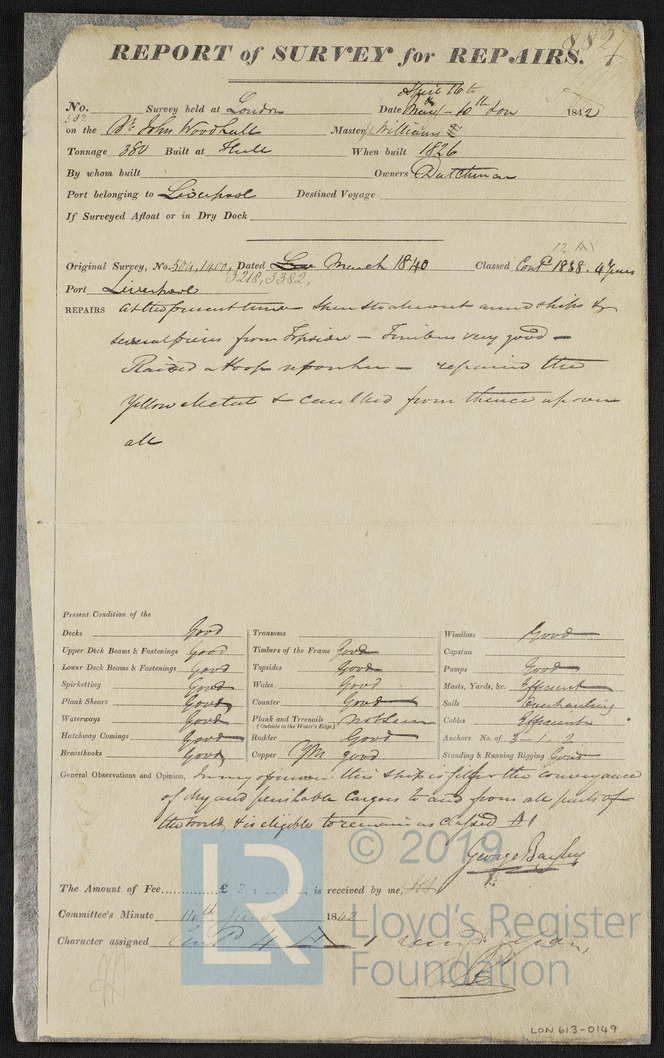 8827
REPORT of SURVEY for REPAIRS.
April 16th
No. 582 Survey held at London Date May 10th Jan 1842
on the Bk John Woodhall Master Williams
Tonnage 380 Built at Hull When built 1826
By whom built Owners Dutchman
Port belonging to Liverpool Destined Voyage
If Surveyed Afloat or in Dry Dock
12 A1
Original Survey, No. 504, 1400, Dated March 1840 Classed Contd 1838. 4 years
3218, 3382,
Port Liverpool
REPAIRS At the present time strake out amidships &
several pieces from Topside – Timbers very good –
Raised a Poop upon her – repaired the
Yellow Metal & caulked from thence up over
all
Present Condition of the
Decks Good
Upper Deck Beams & Fastenings Good
Lower Deck Beams & Fastenings Good
Spirketting Good
Plank Shears Good
Waterways Good
Hatchway Comings Good
Breasthooks Good
Transoms
Timbers of the Frame Good
Topsides Good
Wales Good
Counter Good
Plank and Treenails not seen
(Outside to the Water's Edge)
Rudder Good
Copper YM good
Windlass Good
Capstan
Pumps Good
Masts, Yards, &c. Efficient
Sails Overhauling
Cables Efficient
Anchors No. of 3 – 1. 2
Standing & Running Rigging Good
General Observations and Opinion, In my opinion this ship is fit for the conveyance
of dry and perishable Cargoes to and from all parts of
the world, & is eligible to remain as classed A1
George Bayley
The Amount of Fee............£ 2 : is received by me,
Committee's Minute 14th June 1842
Character assigned Contd 4 A 1
LR
© 2019
Lloyd's Register
Foundation
LON 613-0149